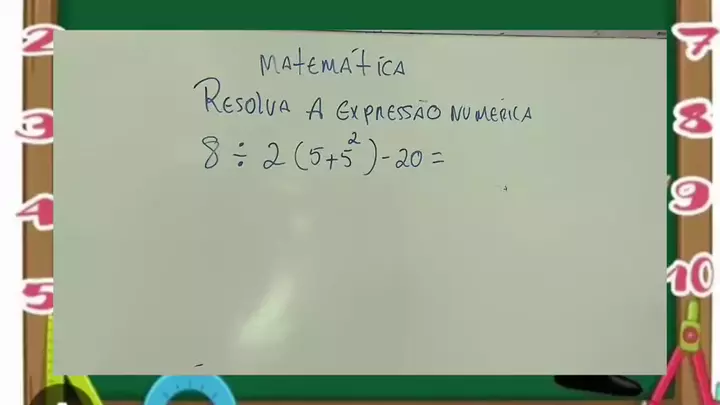 MATEMÁTICA
RESOLVA A EXPRESSÃO NUMÉRICA
8 ÷ 2 (5+5²) - 20 =
2
3
4
5
7
8
9
10